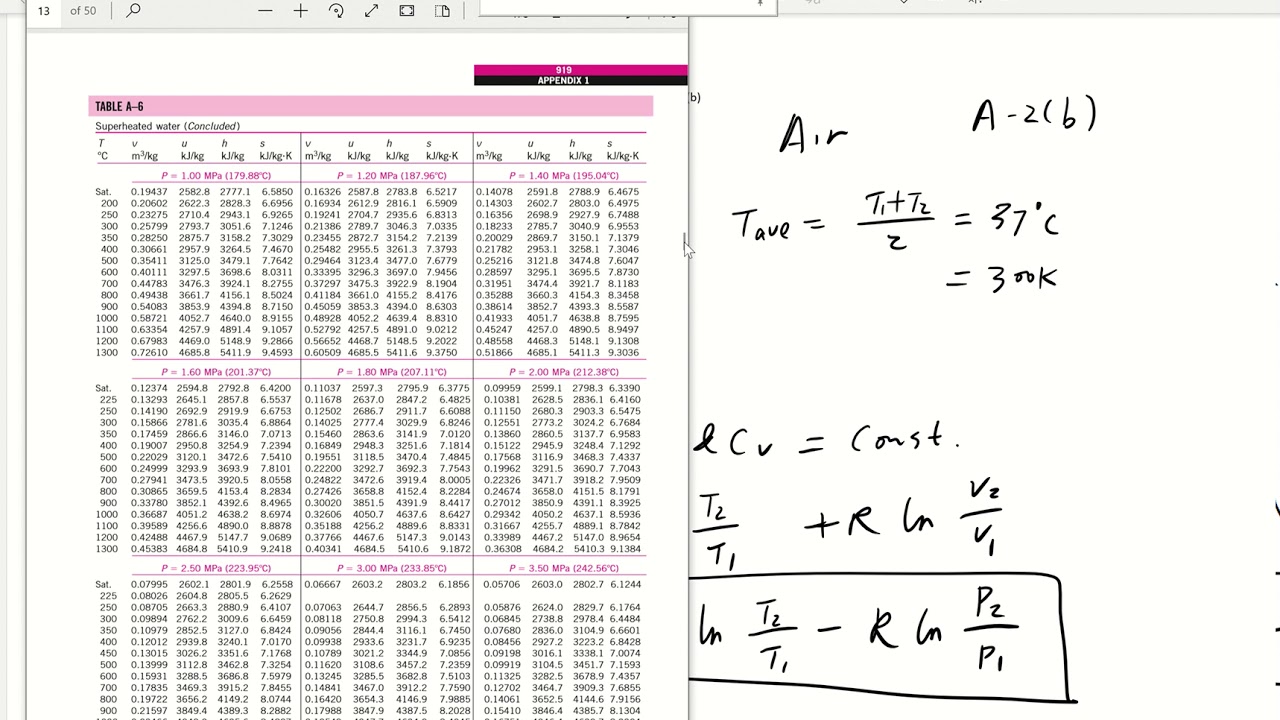 13 of 50
919
APPENDIX 1
TABLE A–6
Superheated water (Concluded)
T v u h s v u h s v u h s
°C m³/kg kJ/kg kJ/kg kJ/kg·K m³/kg kJ/kg kJ/kg kJ/kg·K m³/kg kJ/kg kJ/kg kJ/kg·K
P = 1.00 MPa (179.88°C) P = 1.20 MPa (187.96°C) P = 1.40 MPa (195.04°C)
Sat. 0.19437 2582.8 2777.1 6.5850 0.16326 2587.8 2783.8 6.5217 0.14078 2591.8 2788.9 6.4675
200 0.20602 2622.3 2828.3 6.6956 0.16934 2612.9 2816.1 6.5909 0.14303 2602.7 2803.0 6.4975
250 0.23275 2710.4 2943.1 6.9265 0.19241 2704.7 2935.6 6.8313 0.16356 2698.9 2927.9 6.7488
300 0.25799 2793.7 3051.6 7.1246 0.21386 2789.7 3046.3 7.0335 0.18233 2785.7 3040.9 6.9553
350 0.28250 2875.7 3158.2 7.3029 0.23455 2872.7 3154.2 7.2139 0.20029 2869.7 3150.1 7.1379
400 0.30661 2957.9 3264.5 7.4670 0.25482 2955.5 3261.3 7.3793 0.21782 2953.1 3258.1 7.3046
500 0.35411 3125.0 3479.1 7.7642 0.29464 3123.4 3477.0 7.6779 0.25216 3121.8 3474.8 7.6047
600 0.40111 3297.5 3698.6 8.0311 0.33395 3296.3 3697.0 7.9456 0.28597 3295.1 3695.5 7.8730
700 0.44783 3476.3 3924.1 8.2755 0.37297 3475.3 3922.9 8.1904 0.31951 3474.4 3921.7 8.1183
800 0.49438 3661.7 4156.1 8.5024 0.41184 3661.0 4155.2 8.4176 0.35288 3660.3 4154.3 8.3458
900 0.54083 3853.9 4394.8 8.7150 0.45059 3853.3 4394.0 8.6303 0.38614 3852.7 4393.3 8.5587
1000 0.58721 4052.7 4640.0 8.9155 0.48928 4052.2 4639.4 8.8310 0.41933 4051.7 4638.8 8.7595
1100 0.63354 4257.9 4891.4 9.1057 0.52792 4257.5 4891.0 9.0212 0.45247 4257.0 4890.5 8.9497
1200 0.67983 4469.0 5148.9 9.2866 0.56652 4468.7 5148.5 9.2022 0.48558 4468.3 5148.1 9.1308
1300 0.72610 4685.8 5411.9 9.4593 0.60509 4685.5 5411.6 9.3750 0.51866 4685.1 5411.3 9.3036
P = 1.60 MPa (201.37°C) P = 1.80 MPa (207.11°C) P = 2.00 MPa (212.38°C)
Sat. 0.12374 2594.8 2792.8 6.4200 0.11037 2597.3 2795.9 6.3775 0.09959 2599.1 2798.3 6.3390
225 0.13293 2645.1 2857.8 6.5537 0.11678 2637.0 2847.2 6.4825 0.10381 2628.5 2836.1 6.4160
250 0.14190 2692.9 2919.9 6.6753 0.12502 2686.7 2911.7 6.6088 0.11150 2680.3 2903.3 6.5475
300 0.15866 2781.6 3035.4 6.8864 0.14025 2777.4 3029.9 6.8246 0.12551 2773.2 3024.2 6.7684
350 0.17459 2866.6 3146.0 7.0713 0.15460 2863.6 3141.9 7.0120 0.13860 2860.5 3137.7 6.9583
400 0.19007 2950.8 3254.9 7.2394 0.16849 2948.3 3251.6 7.1814 0.15122 2945.9 3248.4 7.1292
500 0.22029 3120.1 3472.6 7.5410 0.19551 3118.5 3470.4 7.4845 0.17568 3116.9 3468.3 7.4337
600 0.24999 3293.9 3693.9 7.8101 0.22200 3292.7 3692.3 7.7543 0.19962 3291.5 3690.7 7.7043
700 0.27941 3473.5 3920.5 8.0558 0.24822 3472.6 3919.4 8.0005 0.22326 3471.7 3918.2 7.9509
800 0.30865 3659.5 4153.4 8.2834 0.27426 3658.8 4152.4 8.2284 0.24674 3658.0 4151.5 8.1791
900 0.33780 3852.1 4392.6 8.4965 0.30020 3851.5 4391.9 8.4417 0.27012 3850.9 4391.1 8.3925
1000 0.36687 4051.2 4638.2 8.6974 0.32606 4050.7 4637.6 8.6427 0.29342 4050.2 4637.1 8.5936
1100 0.39589 4256.6 4890.0 8.8878 0.35188 4256.2 4889.6 8.8331 0.31667 4255.7 4889.1 8.7842
1200 0.42488 4467.9 5147.7 9.0689 0.37766 4467.6 5147.3 9.0143 0.33989 4467.2 5147.0 8.9654
1300 0.45383 4684.8 5410.9 9.2418 0.40341 4684.5 5410.6 9.1872 0.36308 4684.2 5410.3 9.1384
P = 2.50 MPa (223.95°C) P = 3.00 MPa (233.85°C) P = 3.50 MPa (242.56°C)
Sat. 0.07995 2602.1 2801.9 6.2558 0.06667 2603.2 2803.2 6.1856 0.05706 2603.0 2802.7 6.1244
225 0.08026 2604.8 2805.5 6.2629
250 0.08705 2663.3 2880.9 6.4107 0.07063 2644.7 2856.5 6.2893 0.05876 2624.0 2829.7 6.1764
300 0.09894 2762.2 3009.6 6.6459 0.08118 2750.8 2994.3 6.5412 0.06845 2738.8 2978.4 6.4484
350 0.10979 2852.5 3127.0 6.8424 0.09056 2844.4 3116.1 6.7450 0.07680 2836.0 3104.9 6.6601
400 0.12012 2939.8 3240.1 7.0170 0.09938 2933.6 3231.7 6.9235 0.08456 2927.2 3223.2 6.8428
450 0.13015 3026.2 3351.6 7.1768 0.10789 3021.2 3344.9 7.0856 0.09198 3016.1 3338.1 7.0074
500 0.13999 3112.8 3462.8 7.3254 0.11620 3108.6 3457.2 7.2359 0.09919 3104.5 3451.7 7.1593
600 0.15931 3288.5 3686.8 7.5979 0.13245 3285.5 3682.8 7.5103 0.11325 3282.5 3678.9 7.4357
700 0.17835 3469.3 3915.2 7.8455 0.14841 3467.0 3912.2 7.7590 0.12702 3464.7 3909.3 7.6855
800 0.19722 3656.2 4149.2 8.0744 0.16420 3654.3 4146.9 7.9885 0.14061 3652.5 4144.6 7.9156
900 0.21597 3849.4 4389.3 8.2882 0.17988 3847.9 4387.5 8.2028 0.15410 3846.4 4385.7 8.1304
b)
Air A-2(b)
Tave = T1+T2 / 2 = 37°C
= 300K
& Cv = Const.
T2/T1 + R ln V2/V1
ln T2/T1 - R ln P2/P1